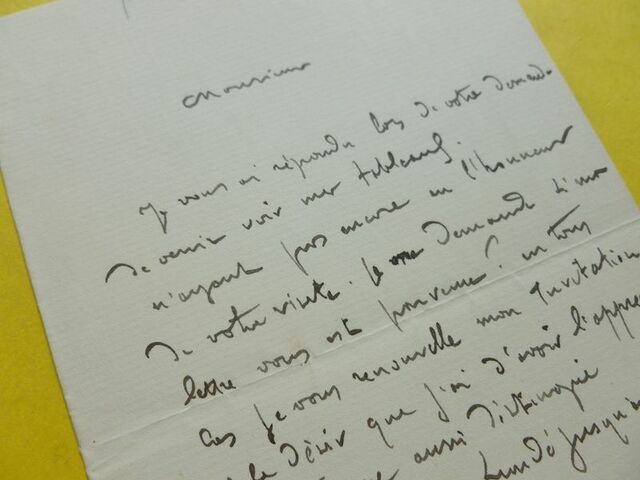 Monsieur
Je vous ai répondu lors de votre demande
de venir voir mes tableaux.
n'ayant pas encore eu l'honneur
de votre visite. Je me demande si ma
lettre vous est parvenue? en tous
cas je vous renouvelle mon invitation
le désir que j'ai d'avoir l'appré
aussi distinguée
Lundi jusqu'